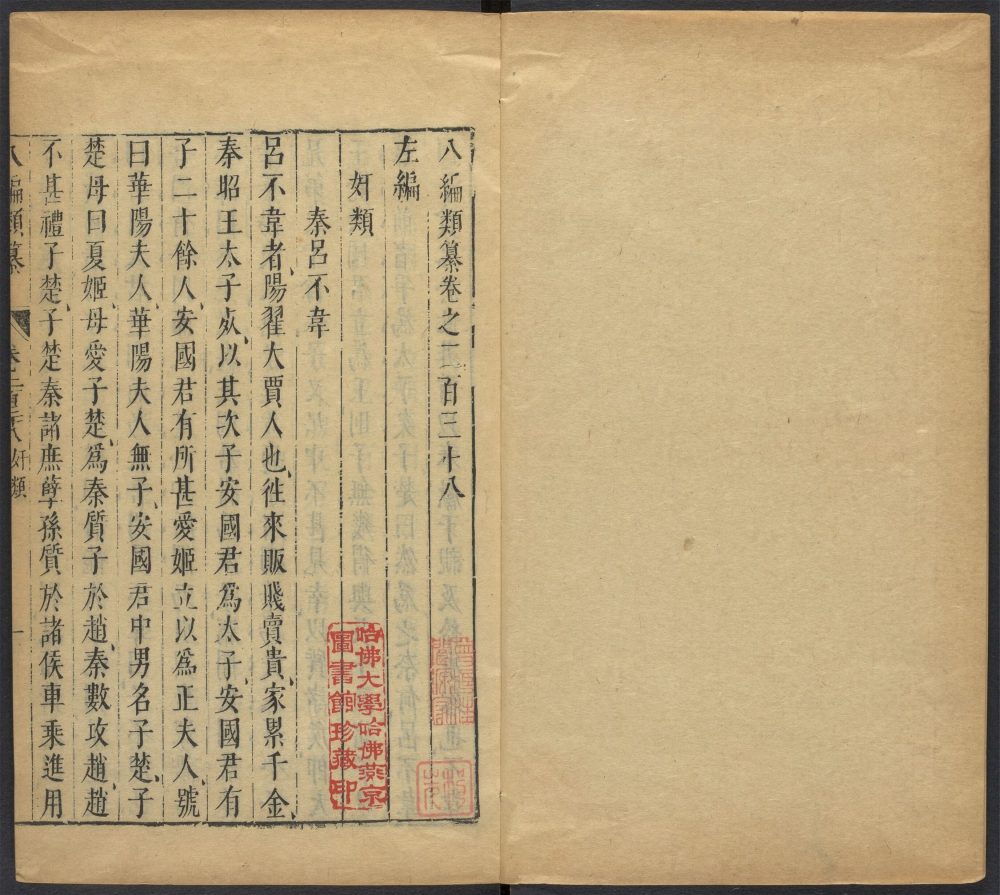 八編類纂卷之二百三十八
左編
奸類
秦呂不韋
呂不韋者、陽翟大賈人也、徃來販賤賣貴、家累千金、
秦昭王太子死、以其次子安國君爲太子、安國君有
子二十餘人、安國君有所甚愛姬立以爲正夫人、號
曰華陽夫人、華陽夫人無子、安國君中男名子楚、子
楚母曰夏姬、母愛子楚、爲秦質子於趙、秦數攻趙、趙
不甚禮子楚、子楚秦諸庶孽孫質於諸侯車乘進用
八編類纂
卷二百三十八 奸類
一
哈佛大學哈佛燕京
圖書館珍藏印